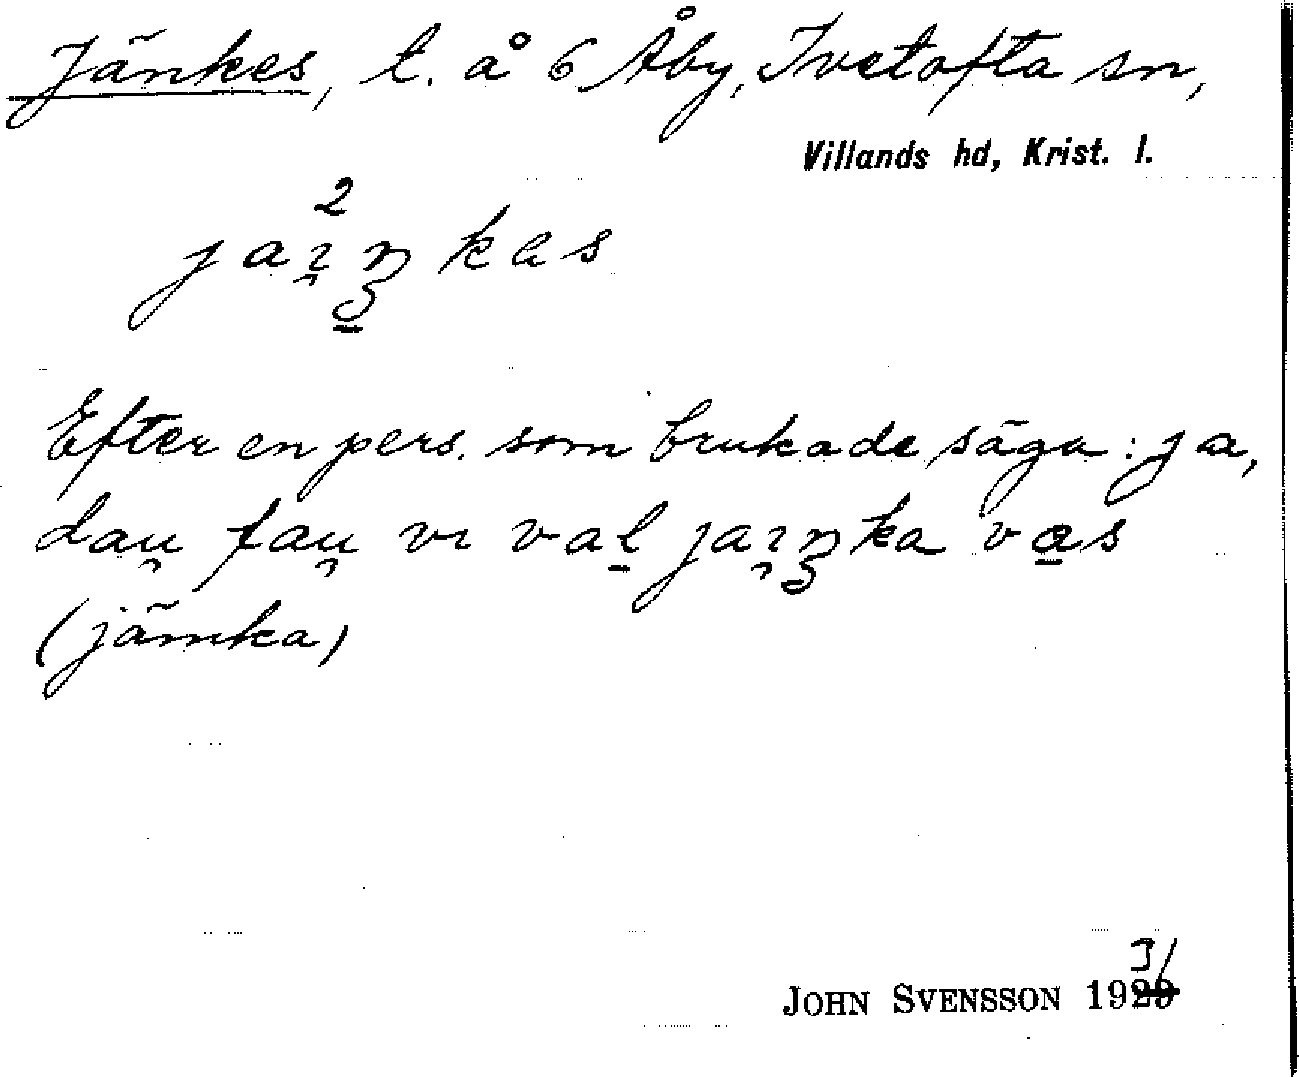 Jänkes, t. å 6 Åby, Ivetofta sn,
Villands hd, Krist. l.
2
jaɪ̯ŋkas
Efter en pers. som brukade säga: ja,
dau̯ fau̯ vɪ val jaɪ̯ŋka vas
(jämka)
31
JOHN SVENSSON 1929